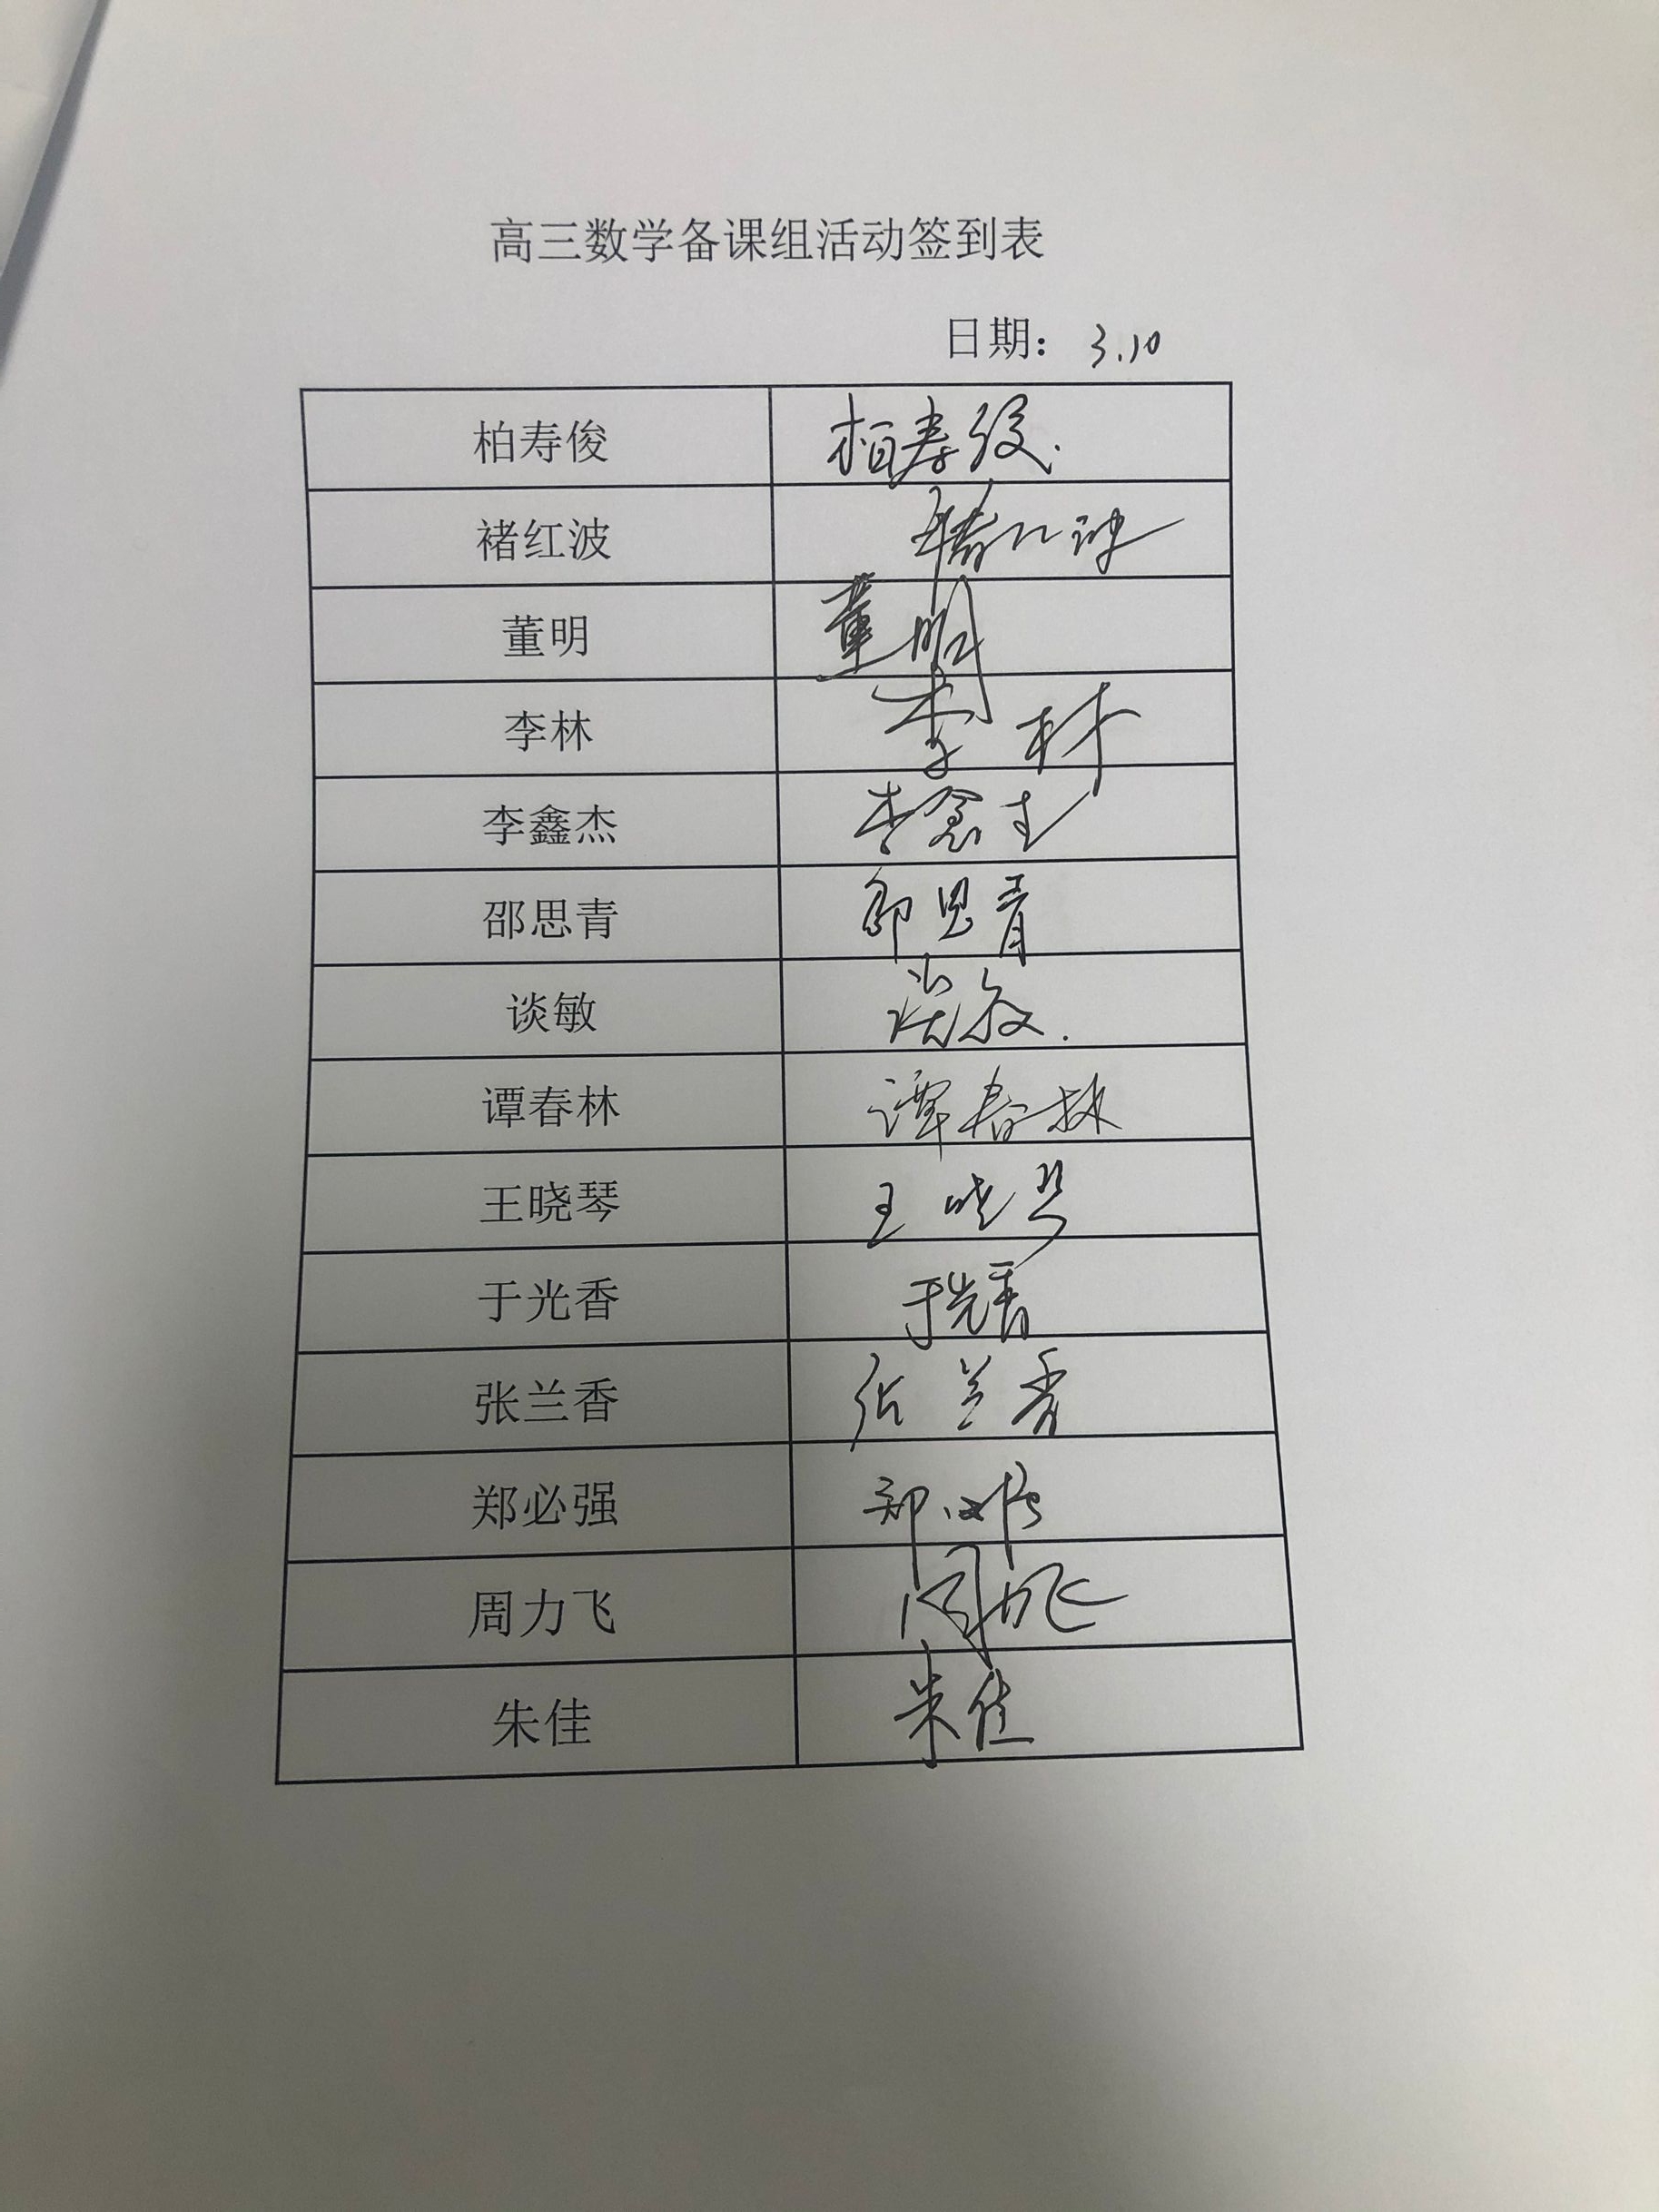 高三数学备课组活动签到表
日期：3.10
柏寿俊 柏寿俊.
褚红波 褚红波
董明 董明
李林 李林
李鑫杰 李鑫杰
邵思青 邵思青
谈敏 谈敏.
谭春林 谭春林
王晓琴 王晓琴
于光香 于光香
张兰香 张兰香
郑必强 郑必强
周力飞 周力飞
朱佳 朱佳